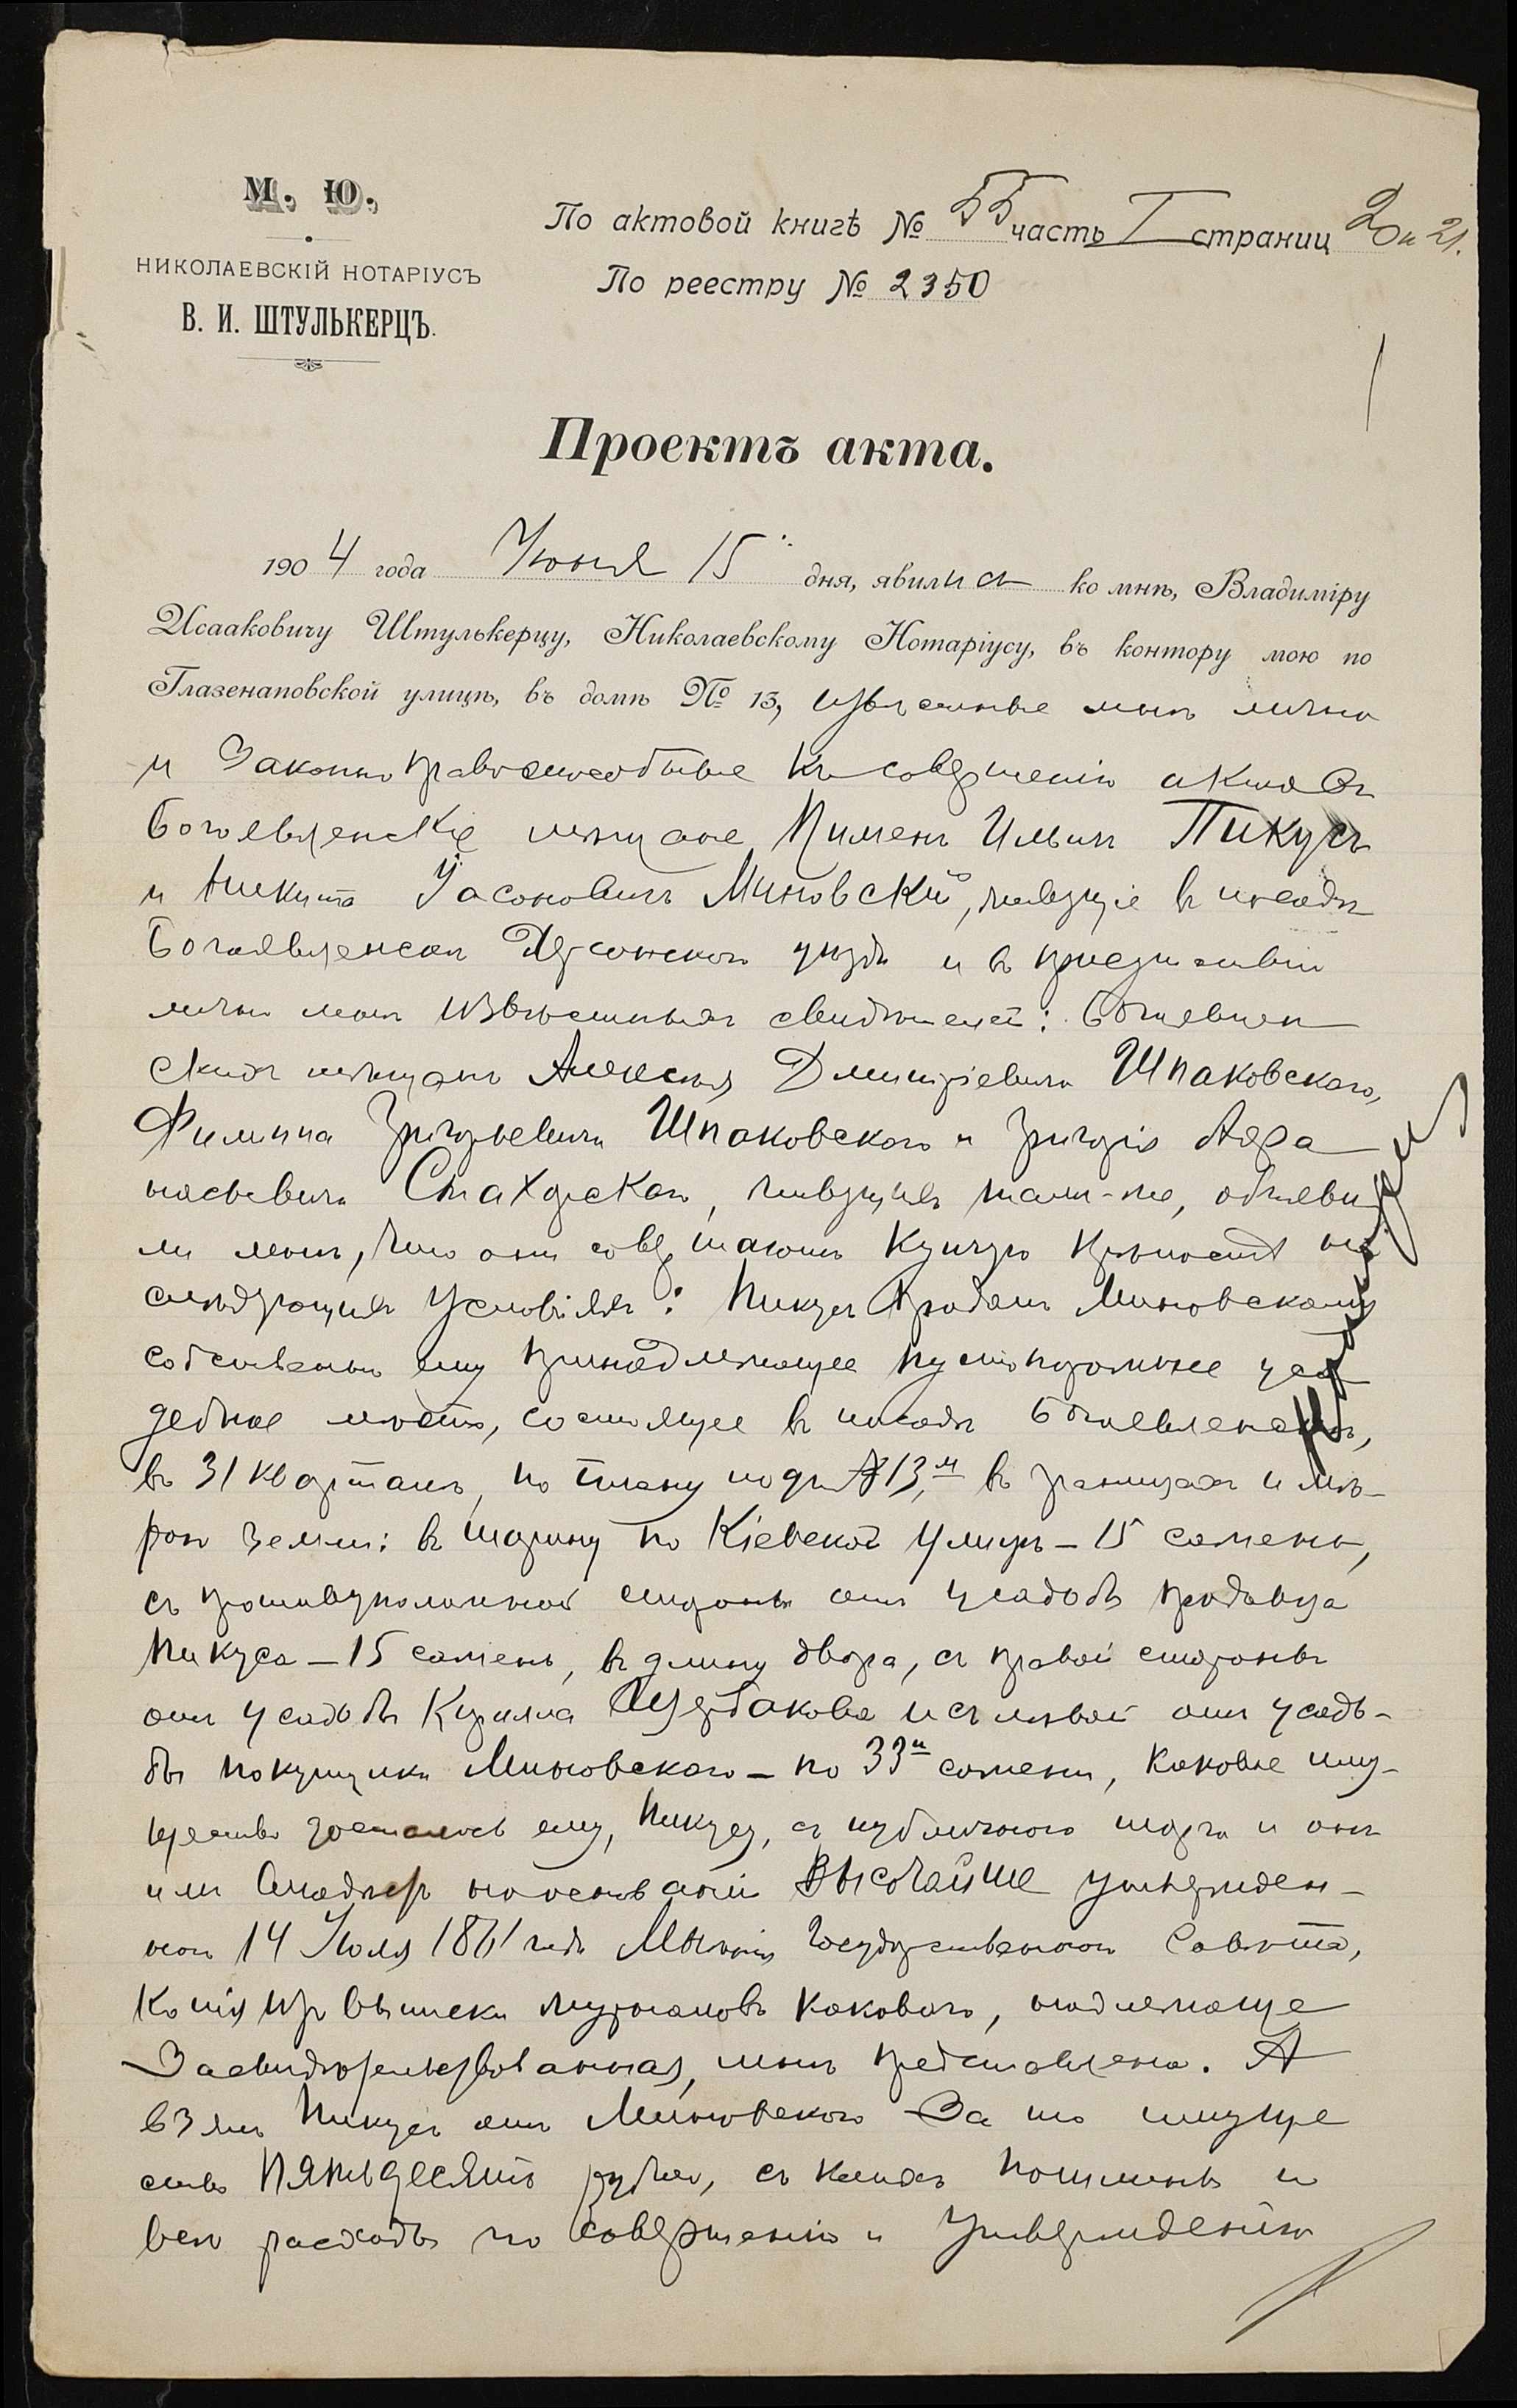 М. Ю.
НИКОЛАЕВСКІЙ НОТАРІУСЪ
В. И. ШТУЛЬКЕРЦЪ.
По актовой книгѣ № 55 часть I страниц 20 и 21.
По реестру № 2350
Проектъ акта.
1904 года Июня 15 дня, явились ко мнѣ, Владиміру
Исааковичу Штулькерцу, Николаевскому Нотаріусу, въ контору мою по
Глазенаповской улицѣ, въ домѣ № 13, извѣстные мнѣ лично
и законно правоспособные къ совершенію актовъ
Богоявленскіе мѣщане Пименъ Ильинъ Пикусъ
и Никита Іасоновичъ Миновскій, живущіе въ посадѣ
Богоявленскѣ Херсонскаго уѣзда и въ присутствіи
лично мнѣ извѣстныхъ свидѣтелей: Богоявлен
скихъ мѣщанъ Алексѣя Дмитріевича Шпаковскаго,
Филиппа Григорьевича Шпаковскаго и Григорія Афа
насьевича Стахорскаго, живущихъ тамъ-же, объяви
ли мнѣ, что они совершаютъ купчую крѣпость на
слѣдующихъ условіяхъ: Пикусъ продалъ Миновскому
собственно ему принадлежащее пустопорожнее уса
дебное мѣсто, состоящее въ посадѣ Богоявленскѣ,
въ 31 кварталѣ, по плану подъ № 13,м въ границахъ и мѣ-
рою земли: въ ширину по Кіевской улицѣ – 15 сажень,
съ противуположной стороны отъ усадьбы продавца
Пикуса – 15 сажень, въ длину двора, съ правой стороны
отъ усадьбы Кирилла Щербакова и съ лѣвой отъ усадь-
бы покупщика Миновскаго – по 33и сажени, каковое иму-
щество досталось ему, Пикусу, съ публичного торга и онъ
имъ владѣетъ на основаніи Высочайше утвержден-
наго 14 Іюля 1861 года Мнѣнія Государственнаго Совѣта,
Копія изъ выписки журналовъ каковаго, надлежаще
засвидѣтельствованная, мнѣ представлена. А
взялъ Пикусъ отъ Миновскаго за то имуще
ство пятьдесятъ рублей, съ коихъ пошлины и
всѣ расходы по совершенію и утвержденію